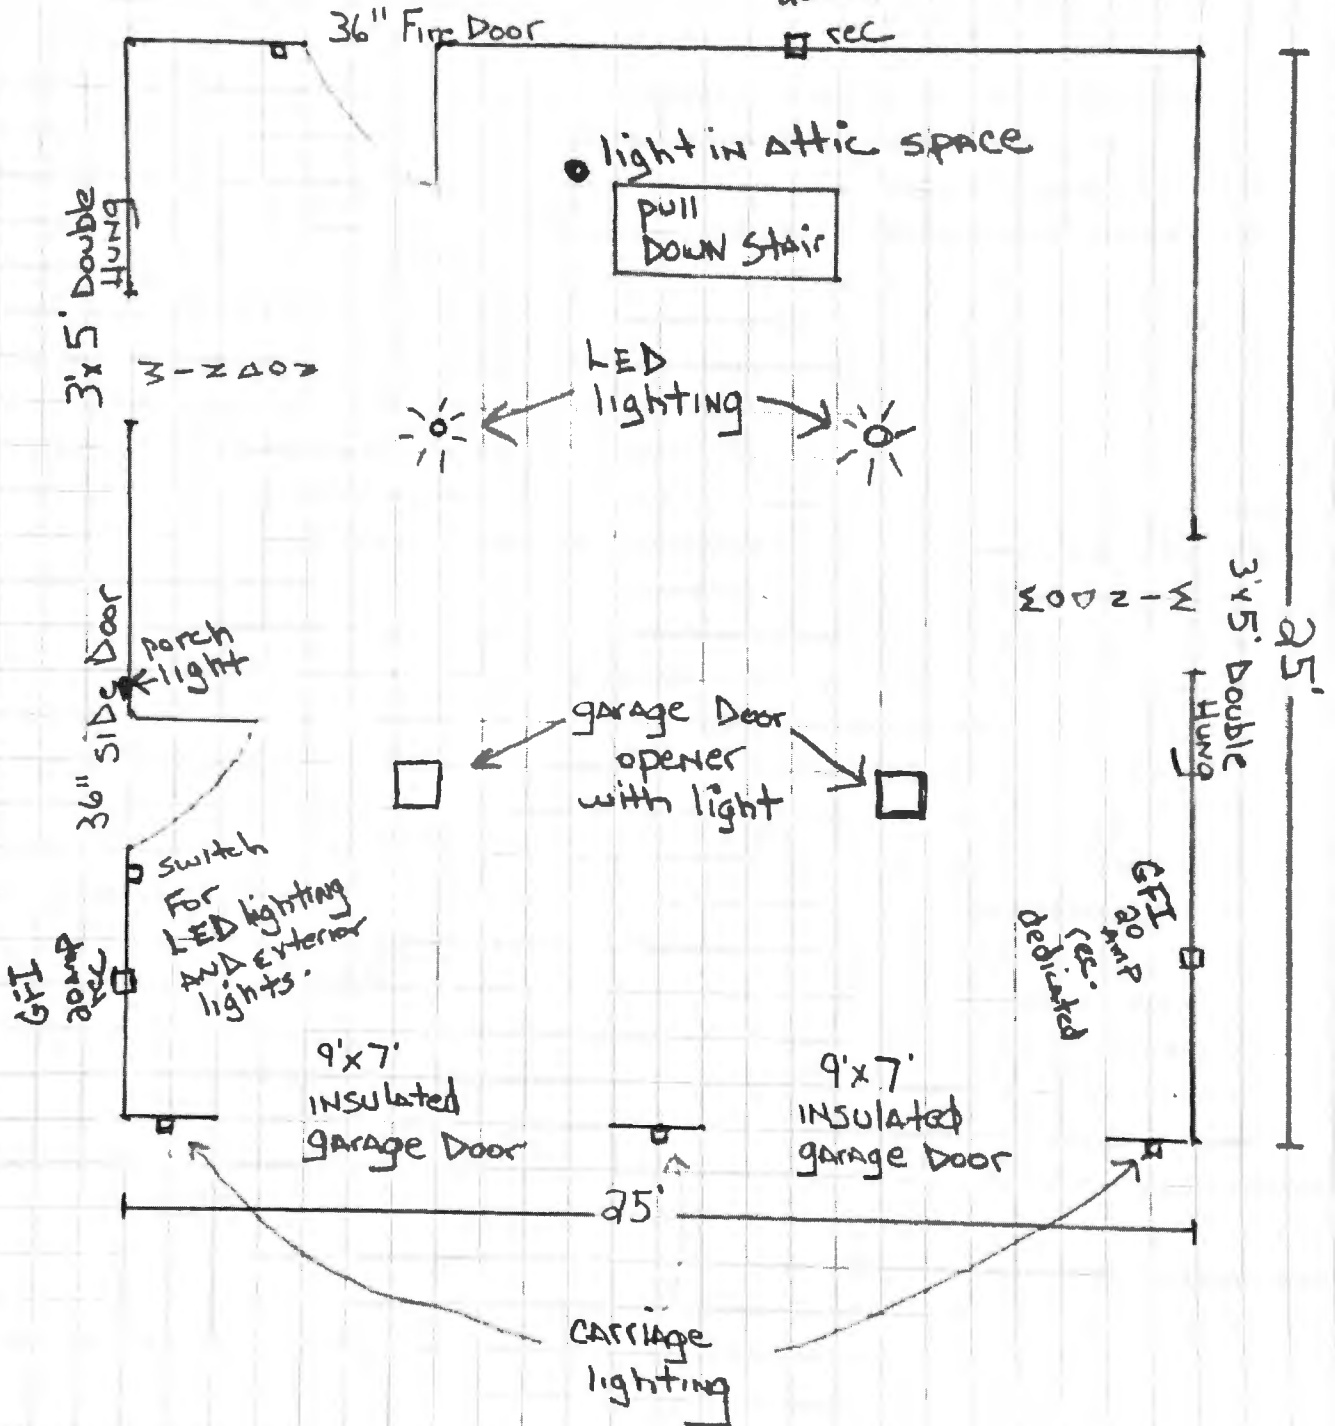 36" Fire Door
rec
light in Attic space
pull
DOWN Stair
3'x5' Double
HUNG
WINDOW
LED
lighting
36" SIDE Door
porch
light
WINDOW
3'x5' Double
HUNG
25'
garage Door
opener
with light
switch
For
LED lighting
AND Exterior
lights.
GFI
20 amp
rec
GFI
20 AMP
rec.
dedicated
9'x7'
INSulated
garage Door
9'x7'
INSulated
garage Door
25'
CARRIAge
lighting